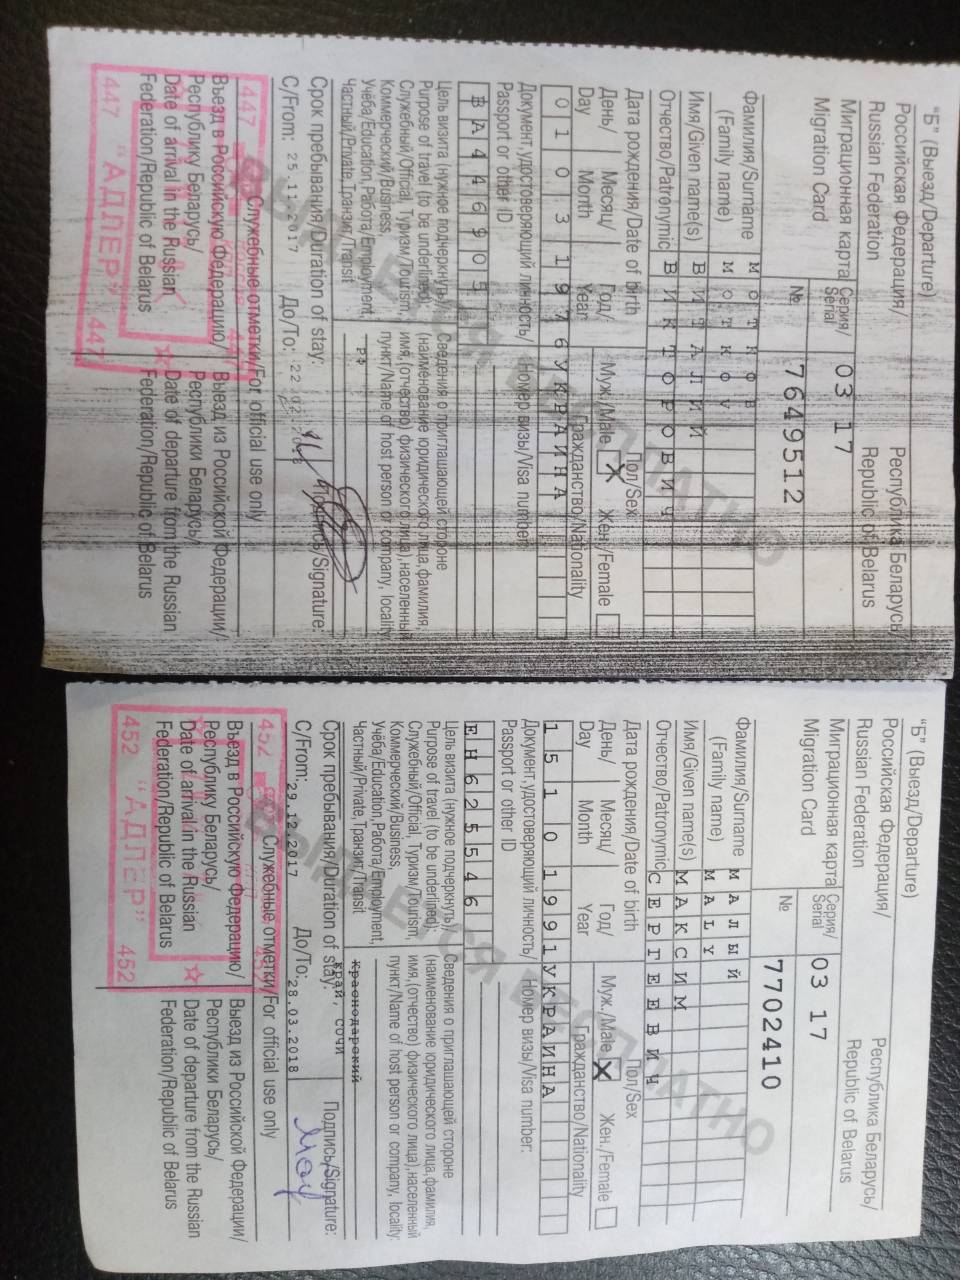 "Б" (Выезд/Departure)
Российская Федерация/
Республика Беларусь/
Russian Federation
Republic of Belarus
Миграционная карта
Migration Card
Серия/
Serial
03 17
№
7649512
Фамилия/Surname
МОТКОВ
(Family name)
MOTKOV
Имя/Given name(s)
ВИТАЛИЙ
Отчество/Patronymic
ВИКТОРОВИЧ
Дата рождения/Date of birth
Пол/Sex
День/
Месяц/
Год/
Муж./Male
X
Жен./Female
Day
Month
Year
Гражданство/Nationality
01031976УКРАИНА
Документ,удостоверяющий личность/
Номер визы/Visa number:
Passport or other ID
ВА446905
Цель визита (нужное подчеркнуть)/
Сведения о приглашающей стороне
Purpose of travel (to be underlined):
(наименование юридического лица,фамилия,
Служебный/Official, Туризм/Tourism,
имя,(отчество) физического лица),населенный
Коммерческий/Business,
пункт/Name of host person or company, locality:
Учёба/Education,Работа/Employment,
Частный/Private,Транзит/Transit
РФ
Срок пребывания/Duration of stay:
Подпись/Signature:
С/From: 25.11.2017
До/To: 22.02.2018
Служебные отметки/For official use only
Въезд в Российскую Федерацию/
Выезд из Российской Федерации/
Республику Беларусь/
Республики Беларусь/
Date of arrival in the Russian
Date of departure from the Russian
Federation/Republic of Belarus
Federation/Republic of Belarus
447
447
447 "АДЛЕР" 447
ВЫДАЕТСЯ БЕСПЛАТНО
"Б" (Выезд/Departure)
Российская Федерация/
Республика Беларусь/
Russian Federation
Republic of Belarus
Миграционная карта
Migration Card
Серия/
Serial
03 17
№
7702410
Фамилия/Surname
МАЛЫЙ
(Family name)
MALY
Имя/Given name(s)
МАКСИМ
Отчество/Patronymic
СЕРГЕЕВИЧ
Дата рождения/Date of birth
Пол/Sex
День/
Месяц/
Год/
Муж./Male
X
Жен./Female
Day
Month
Year
Гражданство/Nationality
15101991УКРАИНА
Документ,удостоверяющий личность/
Номер визы/Visa number:
Passport or other ID
ЕН625546
Цель визита (нужное подчеркнуть)/
Сведения о приглашающей стороне
Purpose of travel (to be underlined):
(наименование юридического лица,фамилия,
Служебный/Official, Туризм/Tourism,
имя,(отчество) физического лица),населенный
Коммерческий/Business,
пункт/Name of host person or company, locality:
Учёба/Education,Работа/Employment,
Частный/Private,Транзит/Transit
краснодарский
край, сочи
Срок пребывания/Duration of stay:
Подпись/Signature:
С/From: 29.12.2017
До/To: 28.03.2018
Служебные отметки/For official use only
Въезд в Российскую Федерацию/
Выезд из Российской Федерации/
Республику Беларусь/
Республики Беларусь/
Date of arrival in the Russian
Date of departure from the Russian
Federation/Republic of Belarus
Federation/Republic of Belarus
452
452
452 "АДЛЕР" 452
ВЫДАЕТСЯ БЕСПЛАТНО